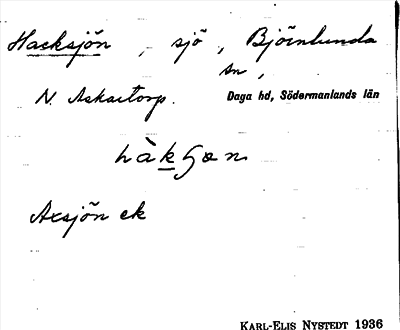 Hacksjön, sjö, Björnlunda
sn,
N. Askartorp. Daga hd, Södermanlands län
Axsjön ek
KARL-ELIS NYSTEDT 1936